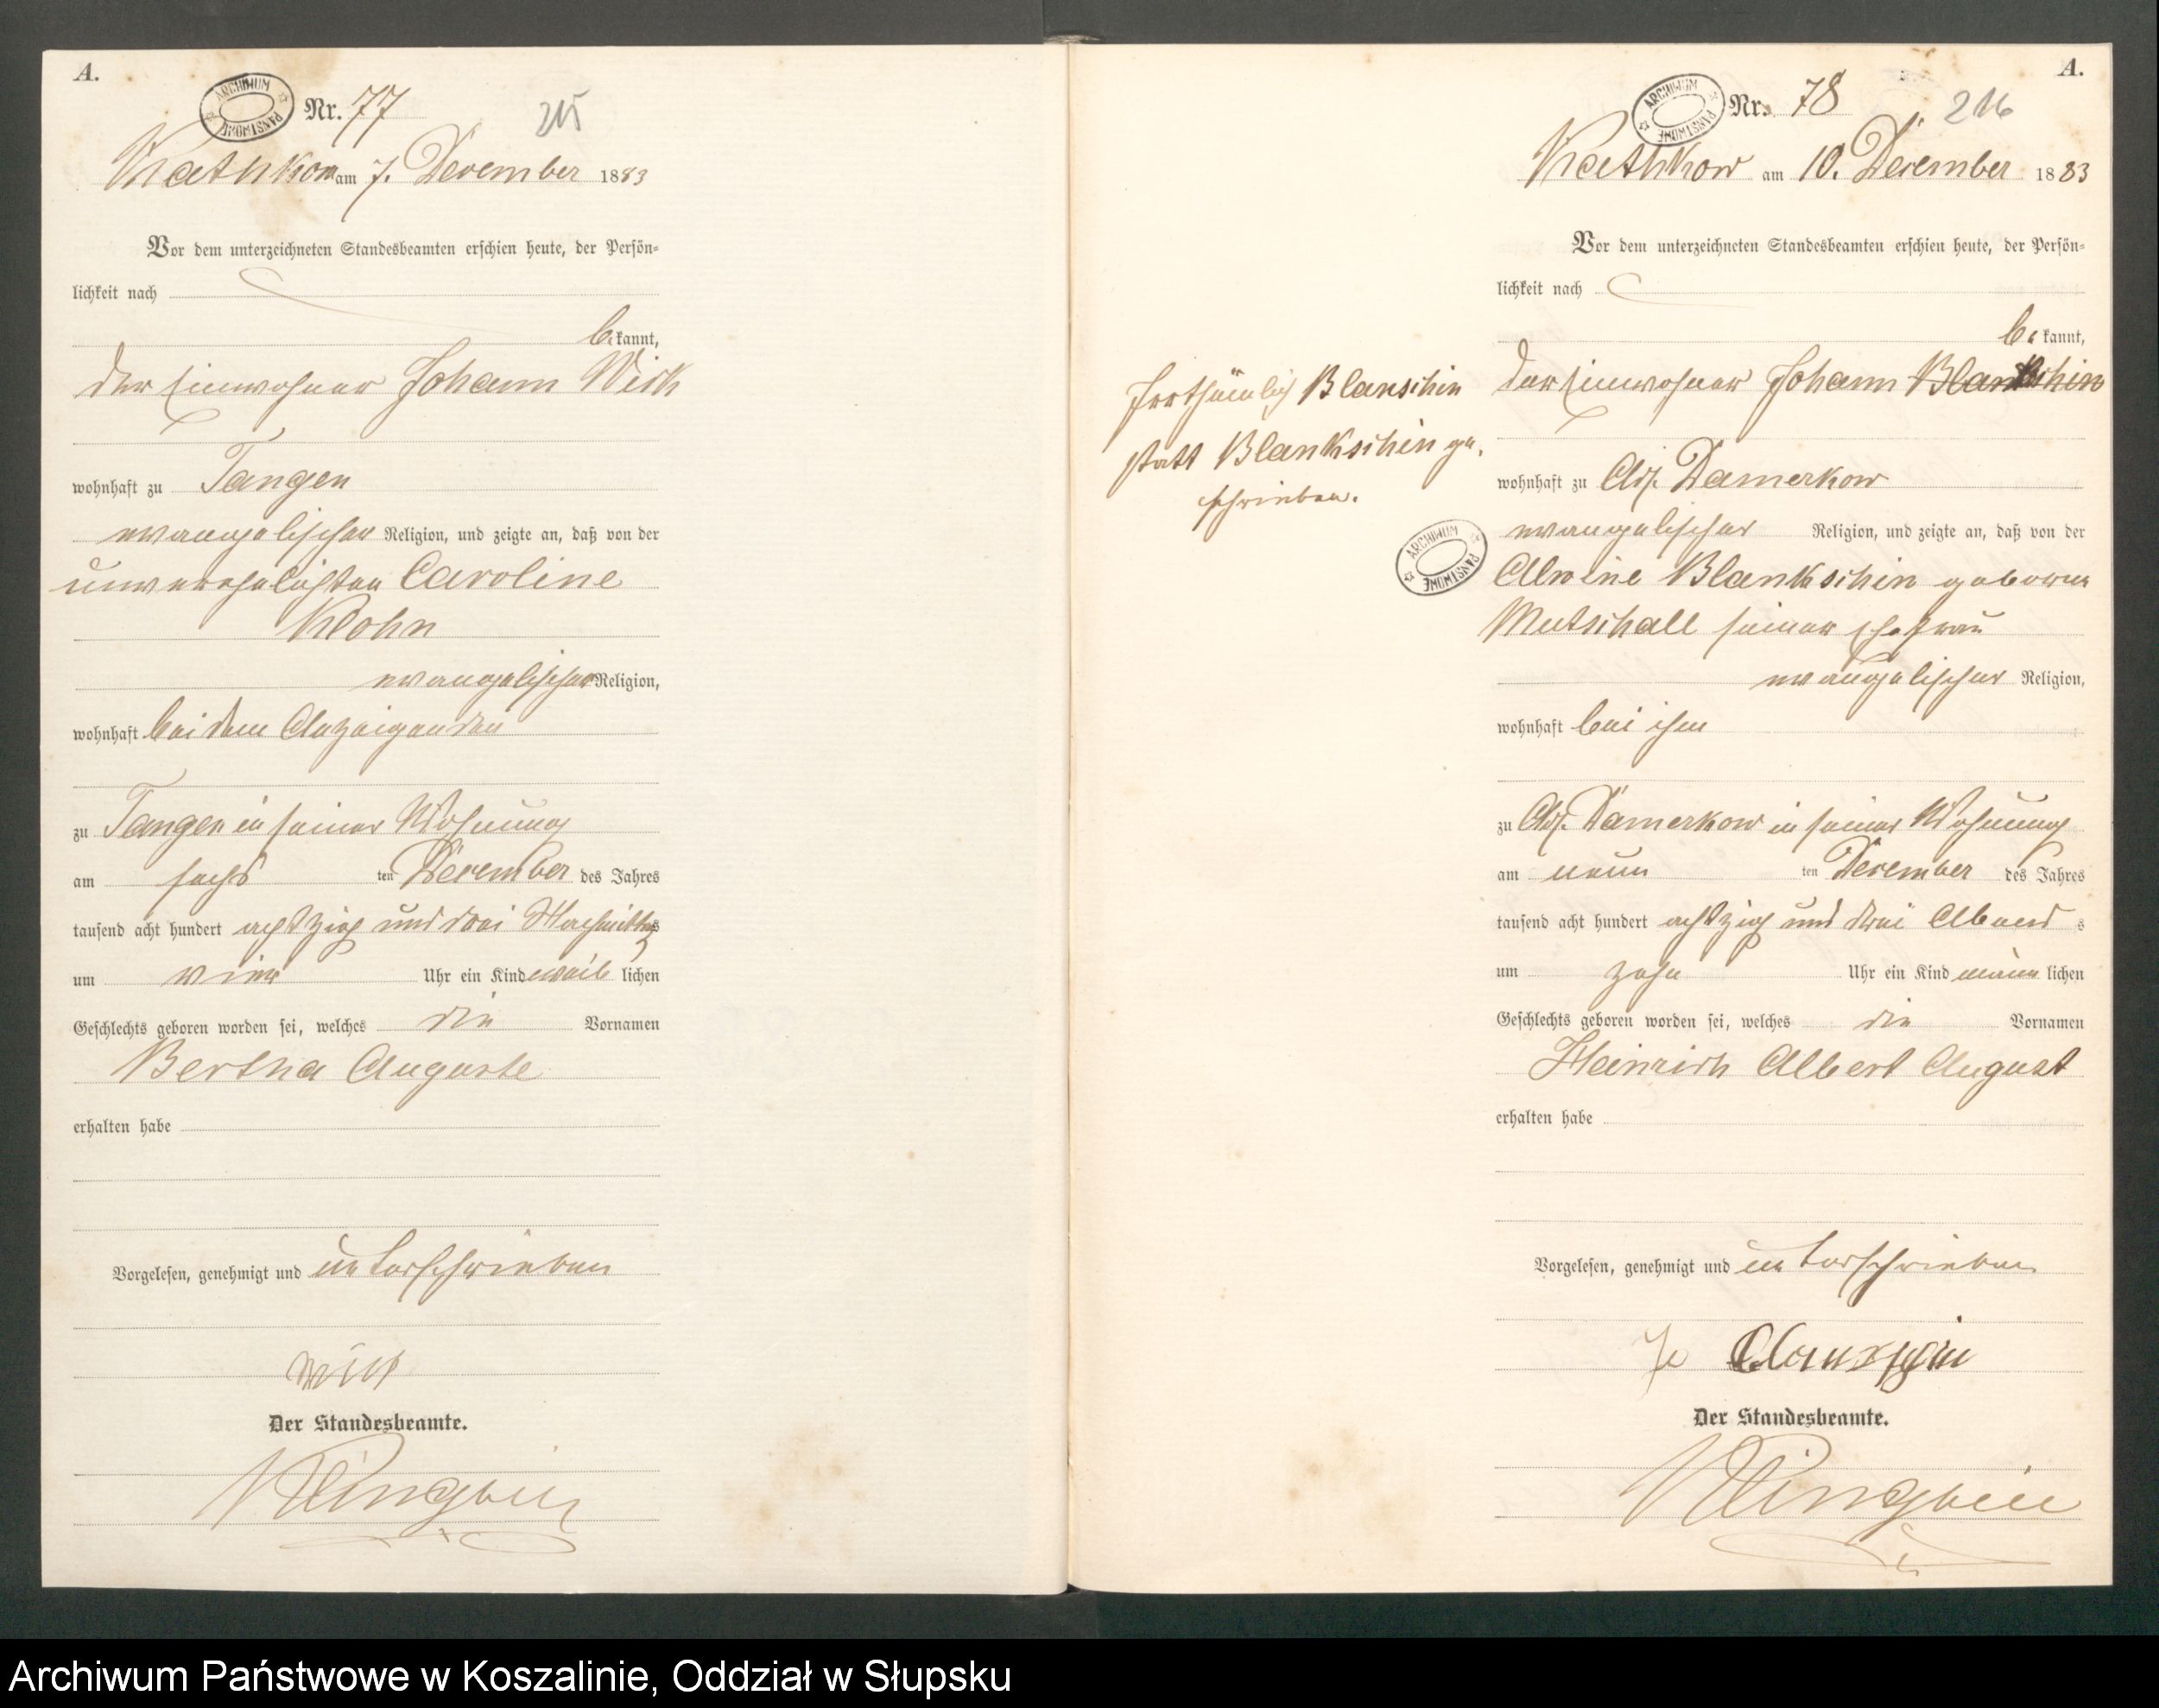 A.
ARCHIWUM PAŃSTWOWE
Nr. 77
215
Kathkow am 7. December 1883
Vor dem unterzeichneten Standesbeamten erschien heute, der Persön-
lichkeit nach
be kannt,
der Einwohner Johann Wick
wohnhaft zu Tangen
evangelischer Religion, und zeigte an, daß von der
unverehelichten Caroline
Klohn
evangelischer Religion,
wohnhaft bei dem Anzeigenden
zu Tangen in seiner Wohnung
am sechs ten December des Jahres
tausend acht hundert achtzig und drei Nachmittags
um vier Uhr ein Kind weib lichen
Geschlechts geboren worden sei, welches die Vornamen
Bertha Auguste
erhalten habe
Vorgelesen, genehmigt und unterschrieben
Der Standesbeamte.
Klingbeil
A.
ARCHIWUM PAŃSTWOWE
Nr. 78
216
Kathkow am 10. December 1883
Vor dem unterzeichneten Standesbeamten erschien heute, der Persön-
lichkeit nach
be kannt,
der Einwohner Johann Blankschin
Irrthümlich Blanschin
statt Blankschin ge-
schrieben.
wohnhaft zu Adl. Damerkow
evangelischer Religion, und zeigte an, daß von der
ARCHIWUM PAŃSTWOWE
Alwine Blankschin geborene
Mutschall seiner Ehefrau
evangelischer Religion,
wohnhaft bei ihm
zu Adl. Damerkow in seiner Wohnung
am neun ten December des Jahres
tausend acht hundert achtzig und drei Abend s
um zehn Uhr ein Kind männ lichen
Geschlechts geboren worden sei, welches die Vornamen
Heinrich Albert August
erhalten habe
Vorgelesen, genehmigt und unterschrieben
Der Standesbeamte.
Klingbeil
Archiwum Państwowe w Koszalinie, Oddział w Słupsku